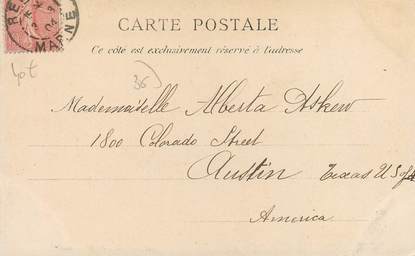 CARTE POSTALE
Ce côté est exclusivement réservé à l'adresse
MARNE
36)
Mademoiselle Alberta Askew
1800 Colorado Street
Austin Texas U S of A
America